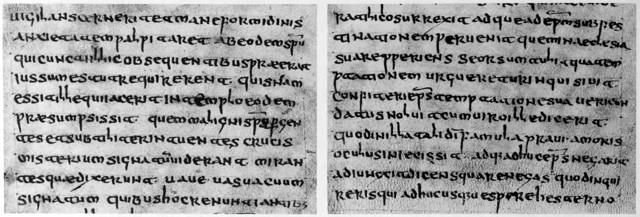 uigilans cerneret et magne formidinis
anxietatem palpitaret ab eodem spu
qui cunctis illic obsequentibus praeerat
iussum est ut requirerent quisnam
esset ille qui iacere in templo eodem
praesumpsissit quem maligni sps pergen
tes et subtiliter intuentes crucis
misterium signatum uiderant miran
tesque dixerunt uae uae uas uacuum
signatum quibus hoc renuntiantibus
surrexit adque ad epm sub fes
tinationem peruenit quem in aeclesia
sua repperiens seorsum tulit quatem
ptationem urgueretur inquisiuit
confiteri eps temptationes sua uericun
datus noluit cum uiro ille diceret
quod in illa tali di famula praui amoris
oculus iniecissit adque adhuc eps negarit
adiuncit dicens quare negas quod inqui
reris qui adhuc usque uespere hesterno